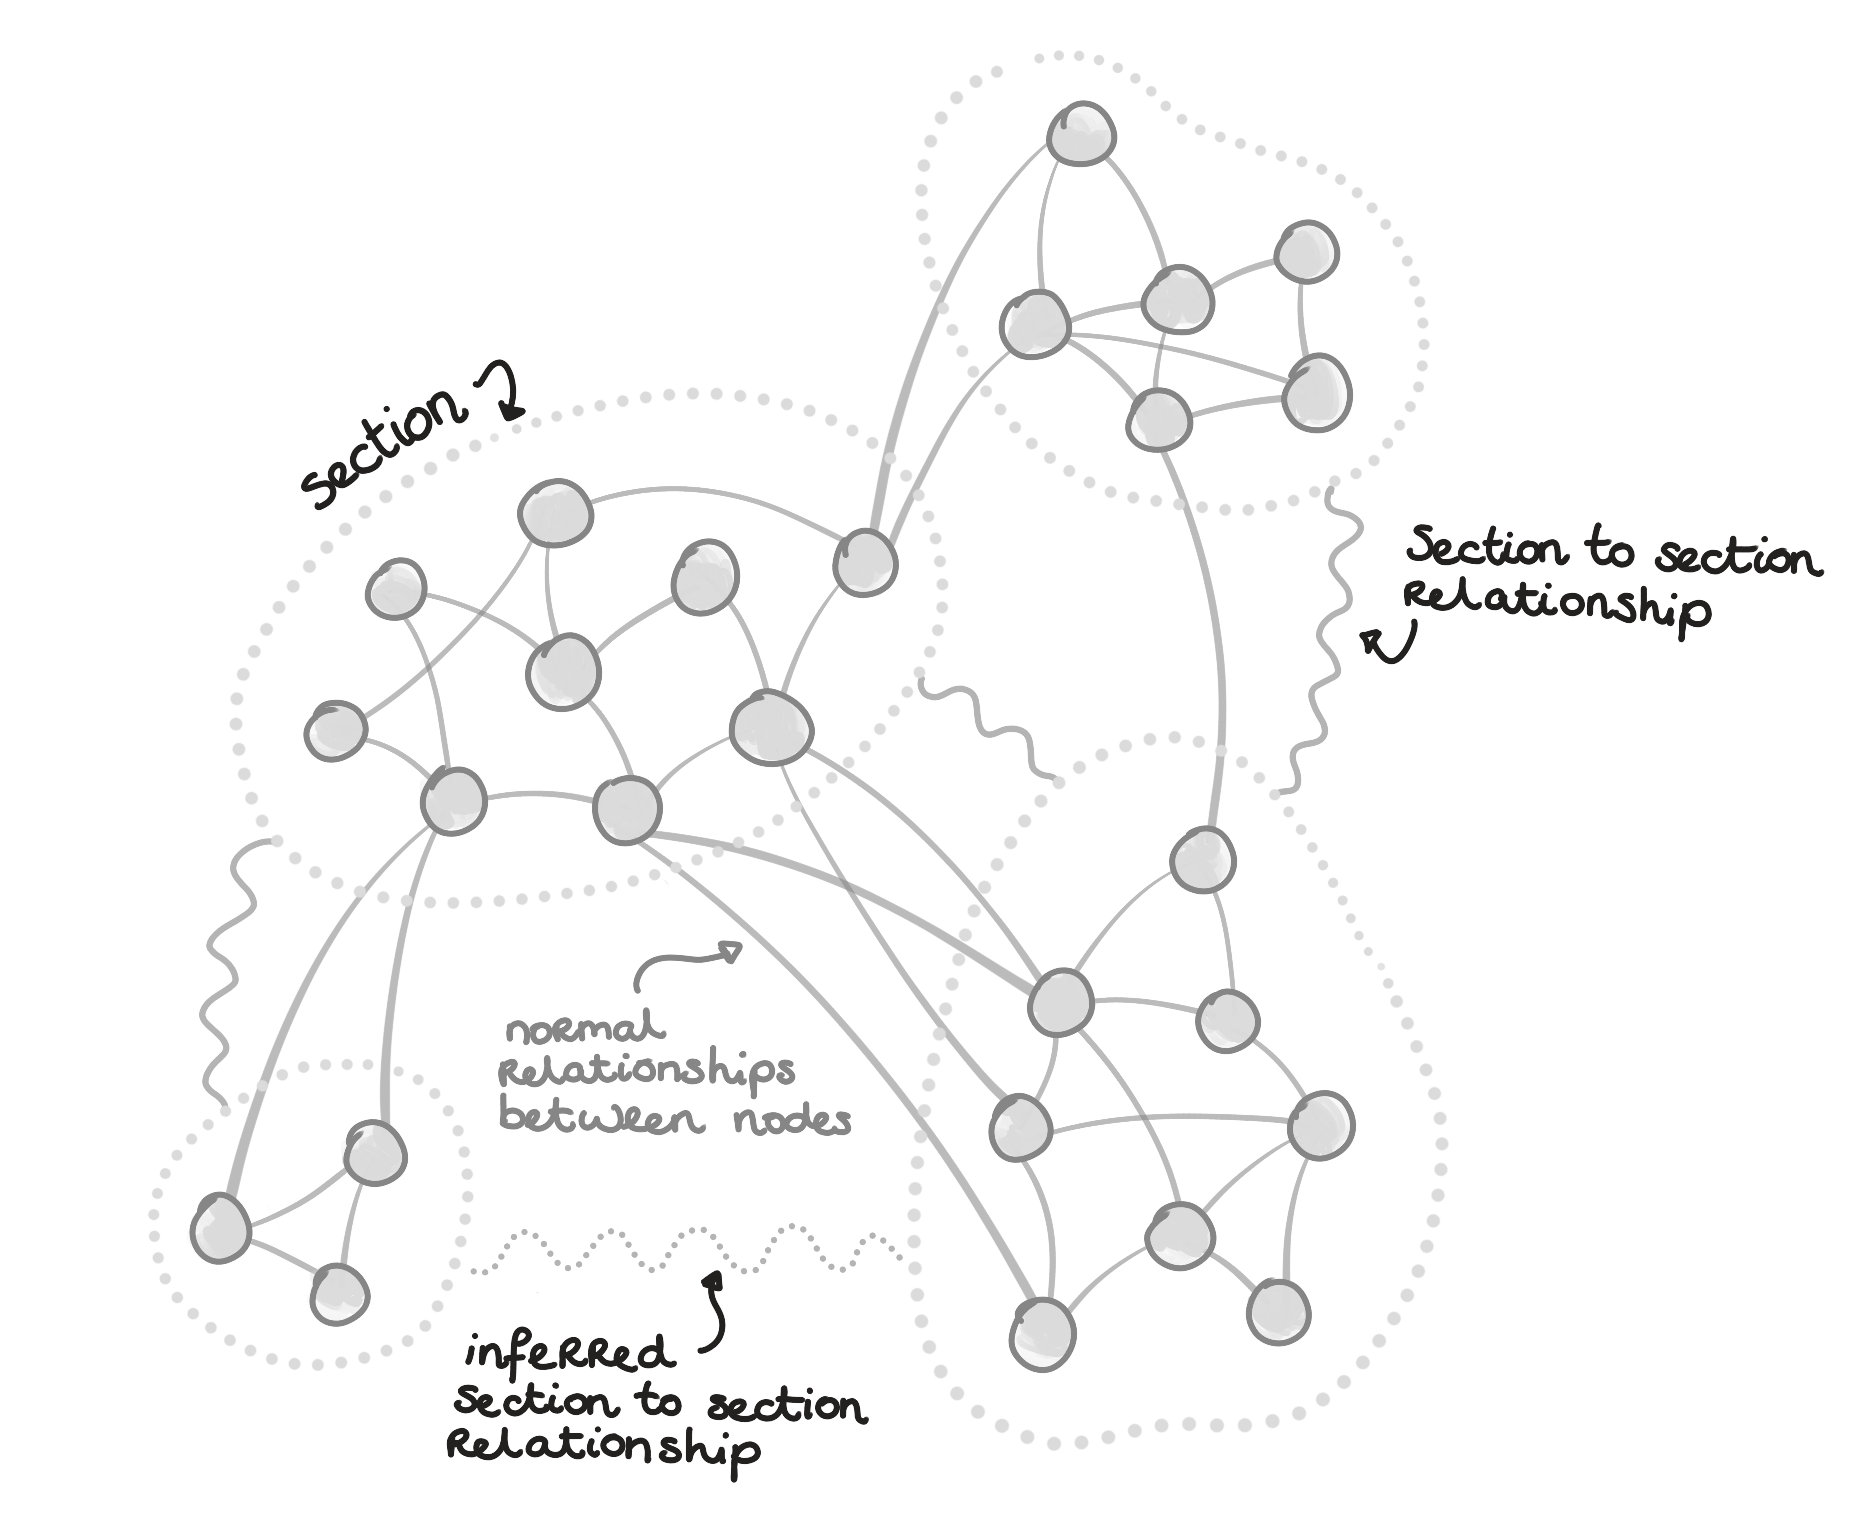 section
Section to section
Relationship
normal
Relationships
between nodes
inferred
section to section
Relationship